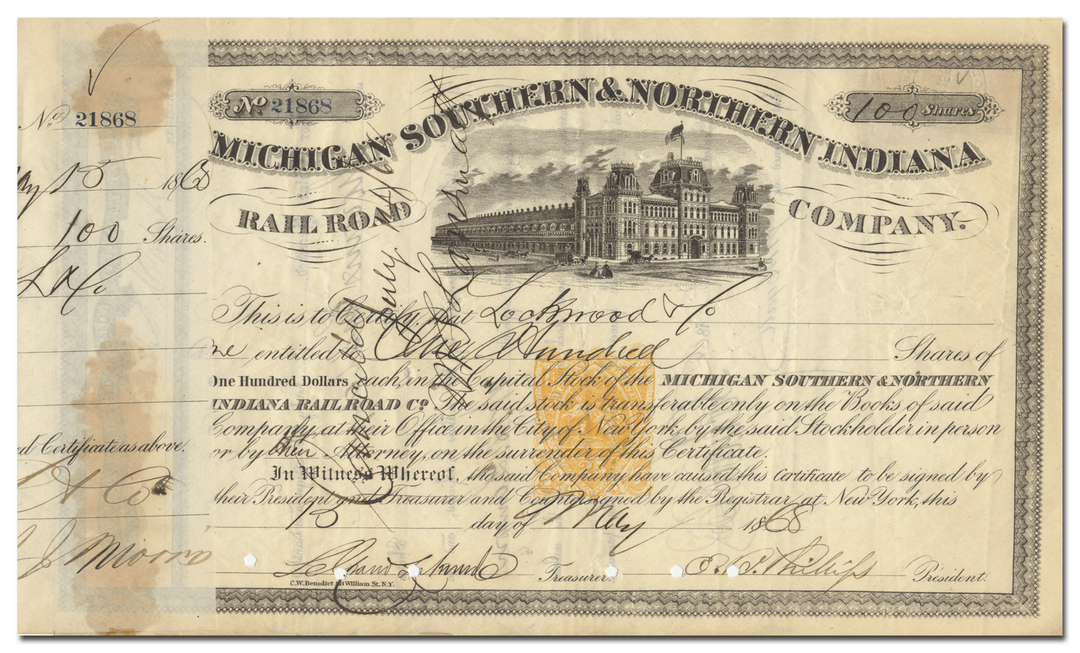 No 21868
May 15 1868
100 Shares.
L & Co
d Certificate as above.
L & Co
J J Moore
No 21868
100 Shares
MICHIGAN SOUTHERN & NORTHERN INDIANA
RAIL ROAD COMPANY.
This is to Certify, that Lockwood & Co
entitled to One Hundred Shares of
One Hundred Dollars each, in the Capital Stock of the MICHIGAN SOUTHERN & NORTHERN
INDIANA RAIL ROAD Co. The said stock is transferable only on the Books of said
Company, at their Office in the City of New York, by the said Stockholder in person
or by their Attorney, on the surrender of this Certificate.
In Witness Whereof, the said Company have caused this Certificate to be signed by
their President and Treasurer and Countersigned by the Registrar, at New York, this
15 day of May 1868
Treasurer. Phillips President.
C.W. Benedict William St. N.Y.
Cancelled